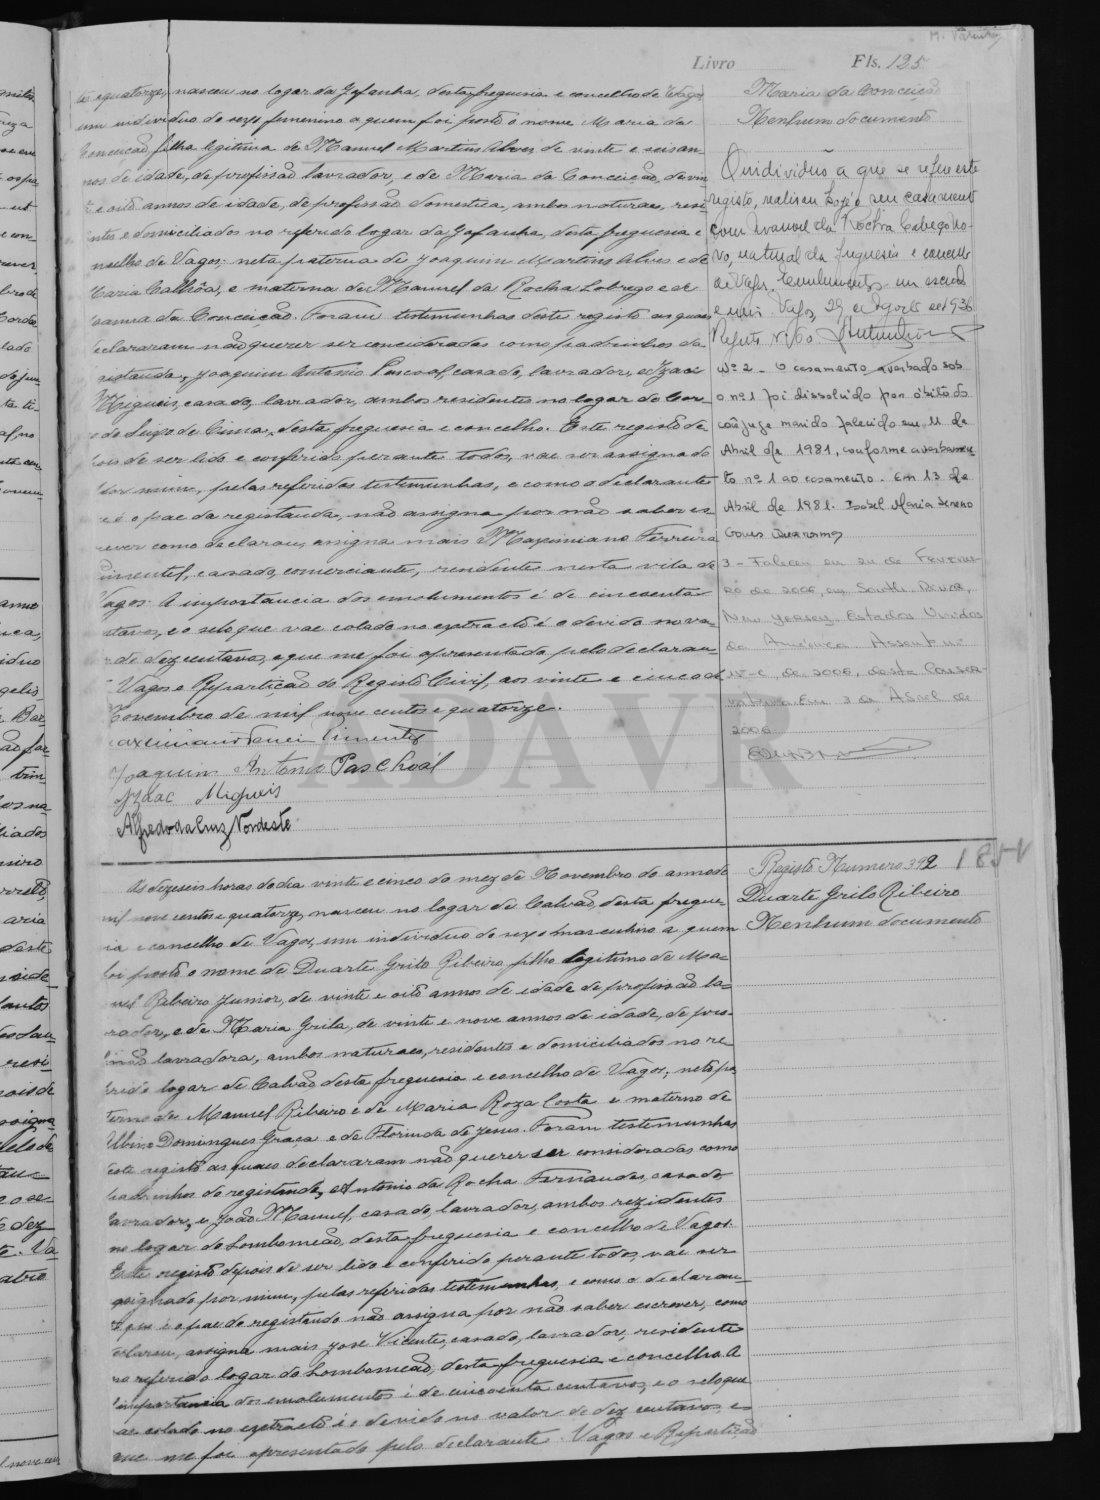 Livro Fls. 125
te e quatorze, nasceu no logar da Gafanha, desta freguesia e concelho de Vagos
um individuo do sexo femenino a quem foi posto o nome Maria da
Conceicão filha legitima de Manuel Martins Alves de vinte e seis an-
nos de idade, de profissão lavrador, e de Maria da Conceição, de vin-
te e oito annos de idade, de profissão domestica, ambos naturaes, resi-
entes e domiciliados no referido logar da Gafanha, desta freguesia e
oncelho de Vagos; neta paterna de Joaquim Martins Alves e de
Maria Calhôa, e materna de Manuel da Rocha Lobrego e de
Joanna da Conceicão. Foram testimunhas deste registo as quaes
eclararam não querer ser concideradas como padrinhos da
gistanda, Joaquim Antonio Pascoal, casado, lavrador, e Izaac
Migueis, casado, lavrador, ambos residentes no logar de Cor-
o do Seixo de Cima, desta freguesia e concelho. Este registo de-
ois de ser lido e conferido perante todos, vae ser assignado
or mim, pelas referidas testimunhas, e como o declarante
e é o pae da registanda, não assigna por não saber es-
rever como declarou, assigna mais Maximiano Ferreira
Pimentel, casado, comerciante, residente nesta vila de
Vagos. A importancia dos emolumentos é de cincoenta
ntavos, e o selo que vae colado no extracto é o devido no va-
r de dez centavos, e que me foi apresentado pelo declaran
Vagos e Repartição do Registo Civil, aos vinte e cinco de
Novembro de mil nove centos e quatorze.
Maximiano Pimentel
Joaquim Antonio Paschoal
Izaac Migueis
Alfredo da Cruz Nordeste
Maria da Conceicão
Nenhum documento
O individuo a que se refere este
registo, realisou hoje o seu casamento
com Manuel da Rocha
vo, natural da freguesia e concelho
de Vagos. Emolumentos um escudo
Vagos, 29 de Agosto de 1936
Nº 2 - O casamento averbado sob
o nº 1 foi dissolvido por óbito do
cônjuge marido falecido em 11 de
Abril de 1981, conforme averbamen
to nº 1 ao casamento. Em 13 de
Abril de 1981. Isabel Maria
3 - Faleceu em 24 de Feverei-
ro de 2006, em South River,
New Jersey, Estados Unidos
da América. Assento nº
15-C de 2006, desta Conser-
vatória. Em 3 de Abril de
2006
ADAVR
Registo Numero 392
Duarte Grilo Ribeiro
Nenhum documento
As dezeseis horas do dia vinte e cinco do mez de Novembro do anno de
mil nove centos e quatorze, nasceu no logar de Calvão, desta fregue-
ia e concelho de Vagos, um individuo do sexo masculino a quem
foi posto o nome de Duarte Grilo Ribeiro, filho legitimo de Ma-
nuel Ribeiro Junior, de vinte e oito annos de idade de profissão la-
rador, e de Maria Grila, de vinte e nove annos de idade, de pro-
issão lavradora, ambos naturaes, residentes e domiciliados no re-
ferido logar de Calvão desta freguesia e concelho de Vagos; neto pa
terno de Manuel Ribeiro e de Maria Roza Costa e materno de
Albino Domingues Graça e de Florinda de Jesus. Foram testemunhas
deste registo as quaes declararam não querer ser consideradas como
padrinhos do registando, Antonio da Rocha Fernandes, casado,
lavrador, e João Manuel, casado, lavrador, ambos rezidentes
no logar do Lombomeão, desta freguesia e concelho de Vagos.
Este registo depois de ser lido e conferido perante todos, vae ser
assignado por mim, pelas referidas testemunhas, e como o declaran-
te que é o pae do registando não assigna por não saber escrever, como
eclarou, assigna mais José Vicente, casado, lavrador, residente
no referido logar do Lombomeão, desta freguesia e concelho. A
importancia dos emolumentos é de cincoenta centavos, e o selo que
ae colado no extracto é o devido no valor de dez centavos, e
que me foi apresentado pelo declarante. Vagos e Repartição